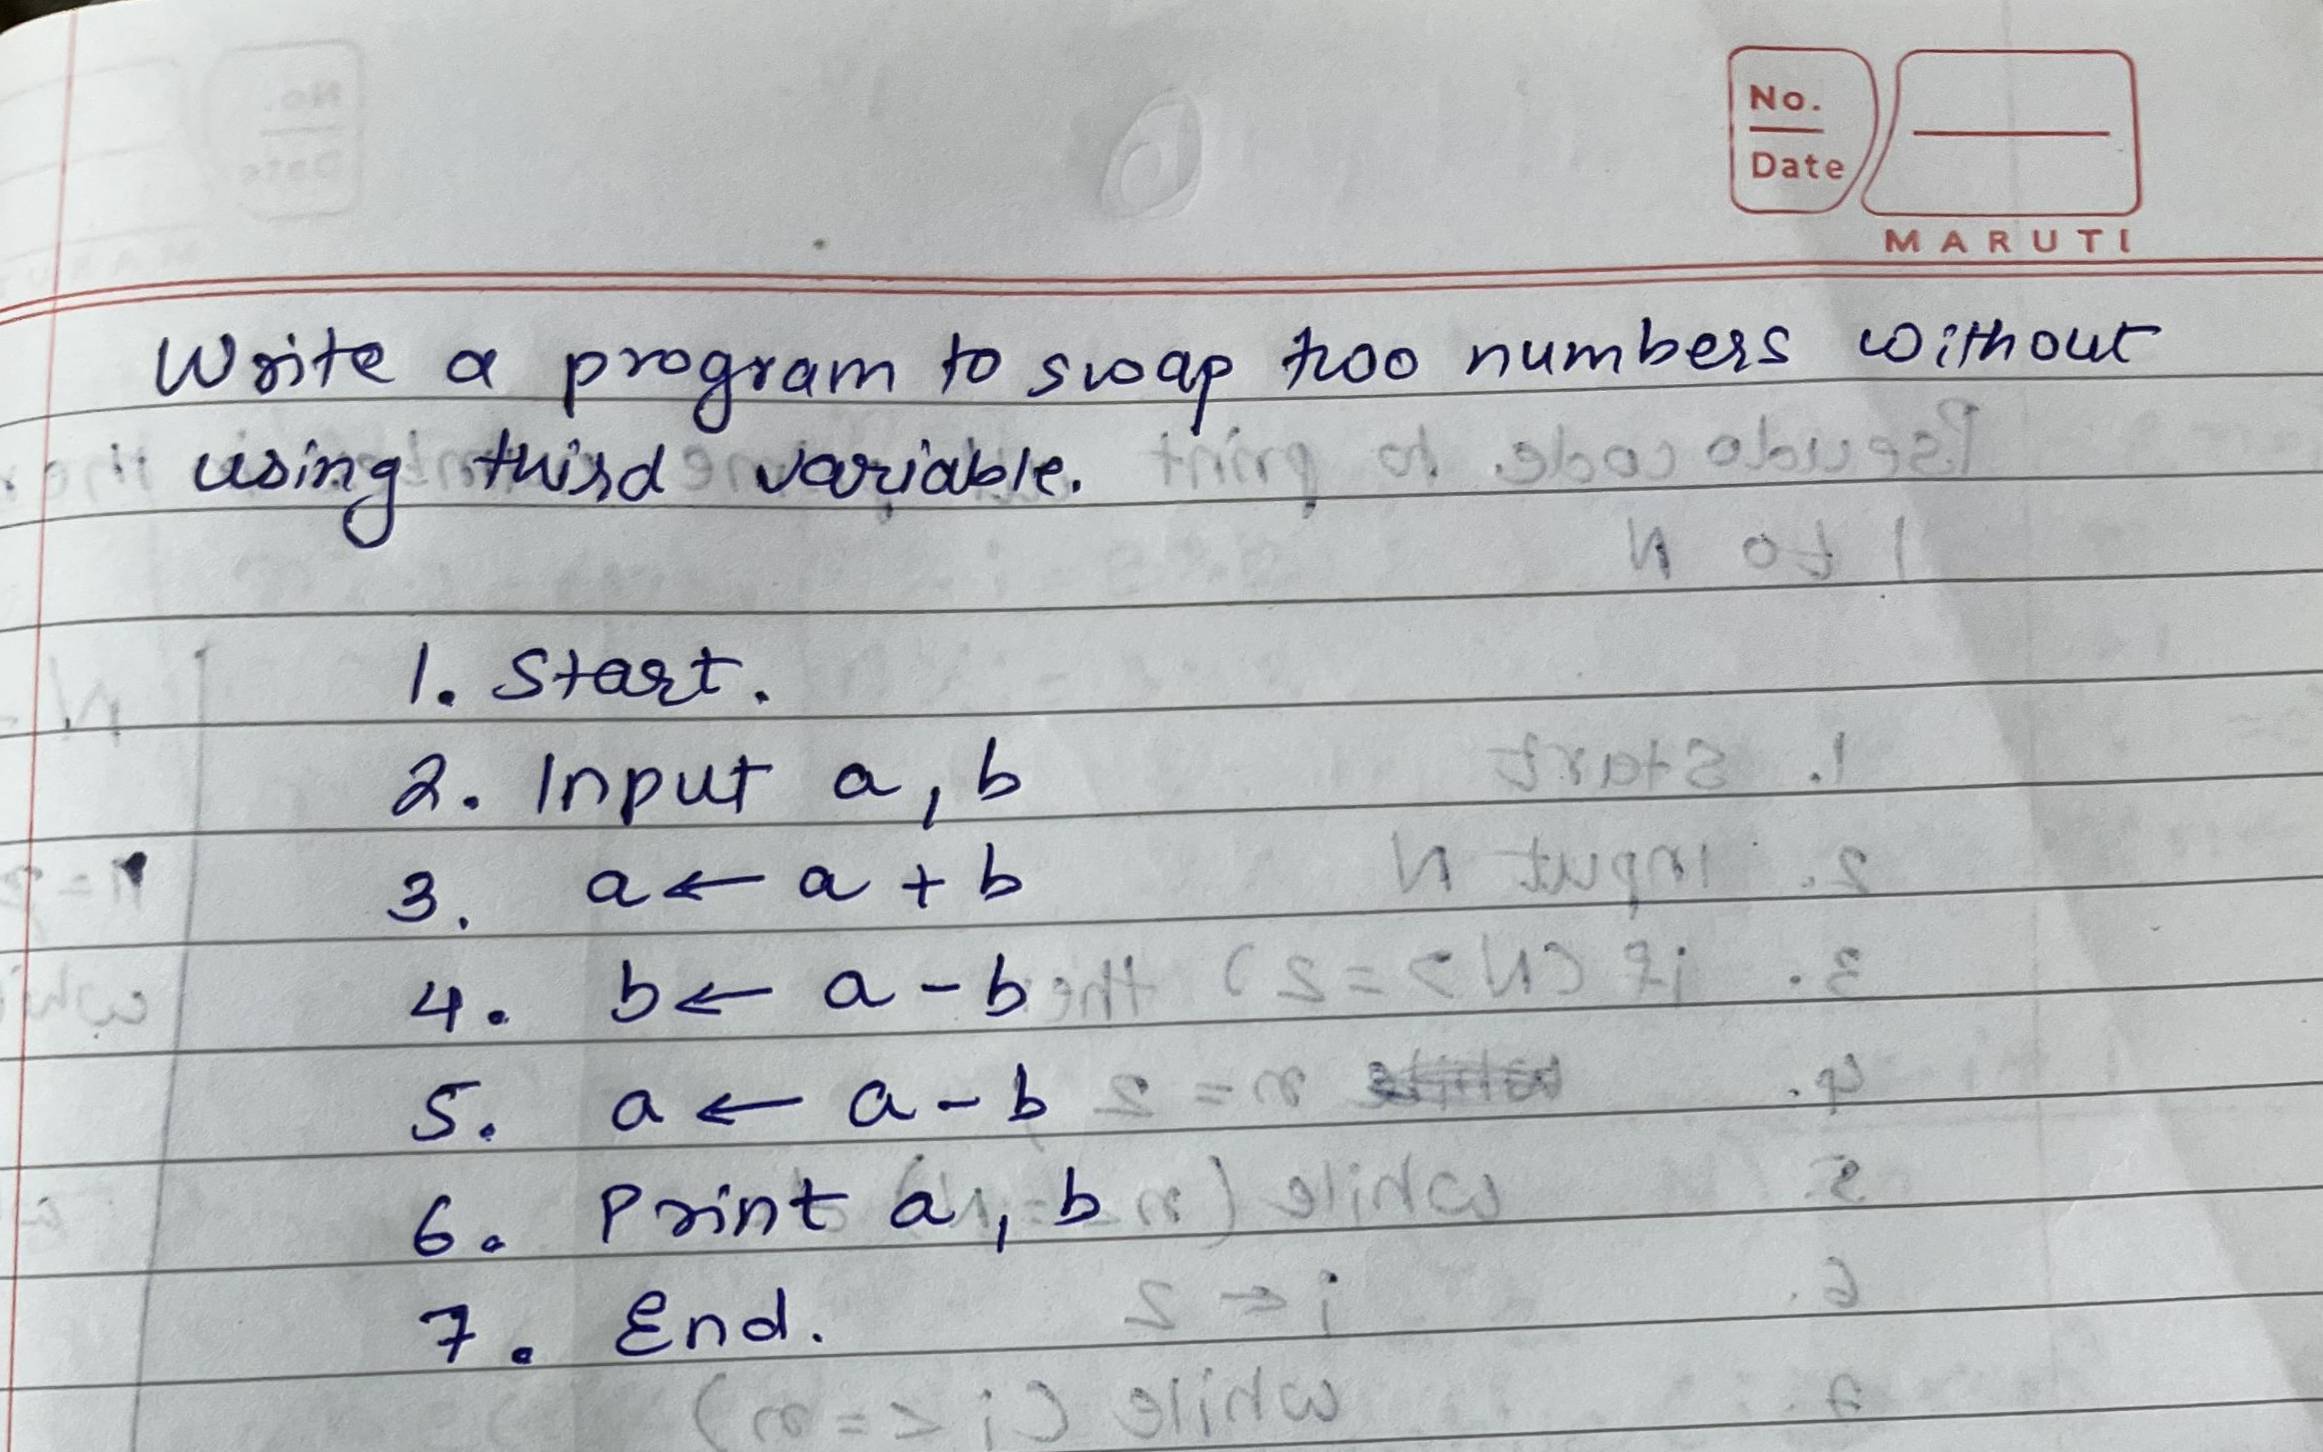 No.
Date
MARUTI
Write a program to swap two numbers without
using third variable.
1. Start.
2. Input a, b
3. a ← a + b
4. b ← a - b
5. a ← a - b
6. Print a, b
7. End.